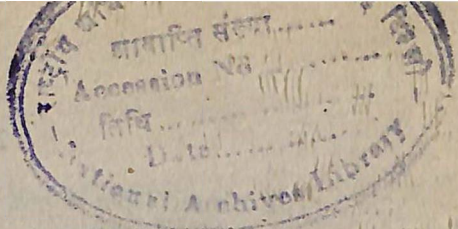 राष्ट्रीय
सामाप्ति संख्या......
Accession No
तिथि
Date
National Archives Library